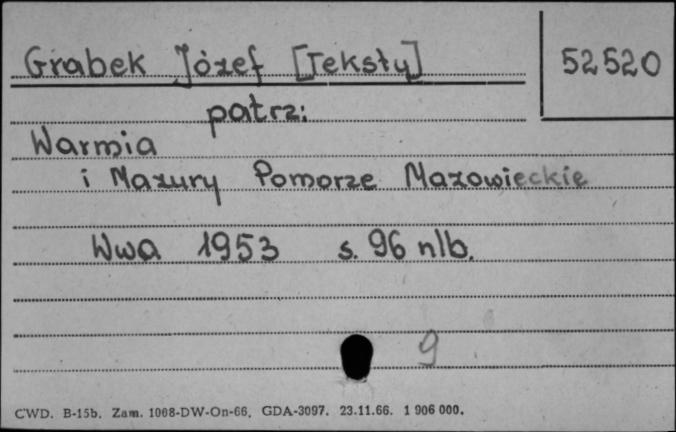 Grabek Józef [Teksty]
52520
patrz:
Warmia
i Mazury Pomorze Mazowieckie
Wwa 1953 s. 96 nlb.
9
CWD. B-15b. Zam. 1068-DW-On-66. GDA-3097. 23.11.66. 1 906 000.